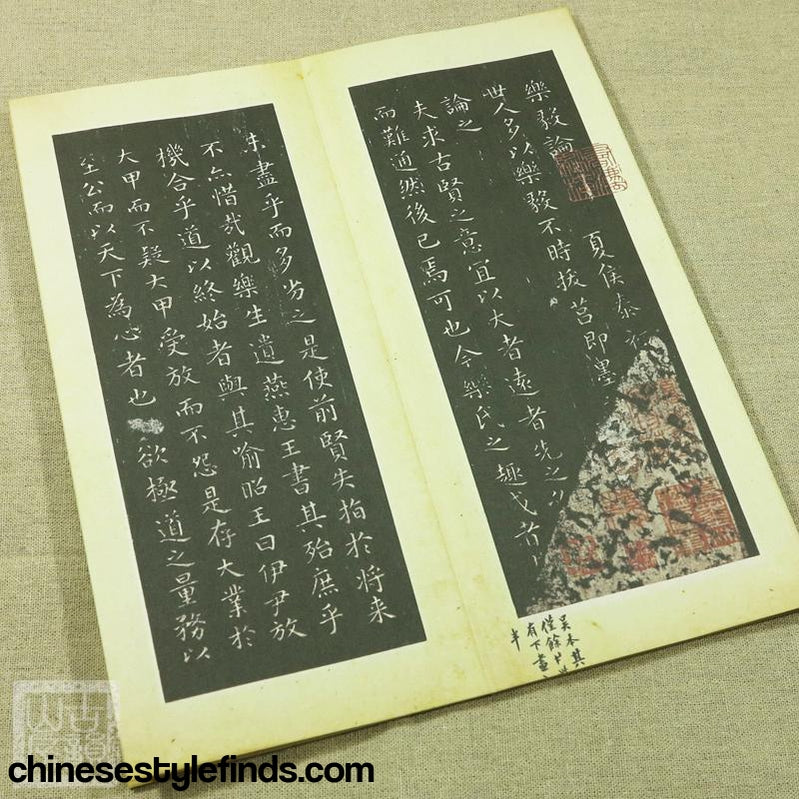 樂毅論
夏侯泰
世人多以樂毅不時拔莒即墨
論之
夫求古賢之意宜以大者遠者先之
而難通然後已焉可也今樂氏之趣或者
未盡乎而多劣之是使前賢失指於將来
不亦惜哉觀樂生遺燕惠王書其殆庶乎
機合乎道以終始者與其喻昭王曰伊尹放
大甲而不疑大甲受放而不怨是存大業於
至公而以天下為心者也欲極道之量務以
吴本其
僅餘
有下畫
半
chinesestylefinds.com